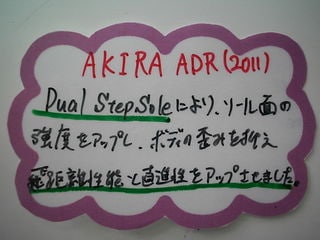 AKIRA ADR(2011)
Dual StepSoleにより、ソール面の
強度をアップし、ボディの歪みを抑え
飛距離性能と直進性をアップさせました。